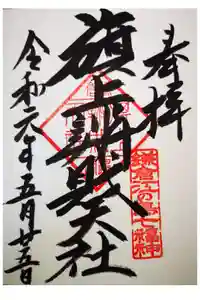 奉拝
旗上弁財天社
令和六年五月廿五日
鎌倉江の島七福神